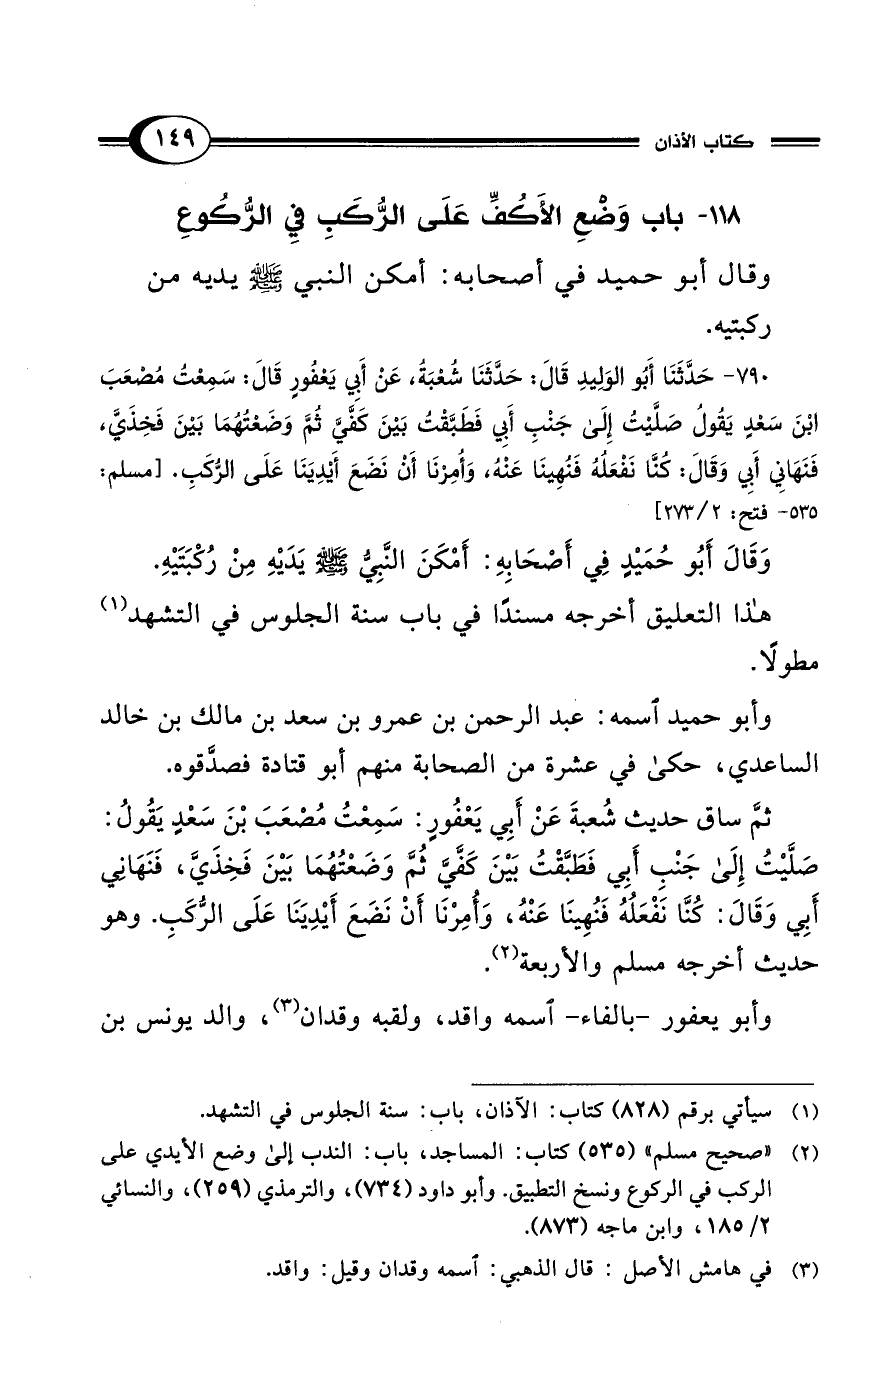 كتاب الأذان
١٤٩
١١٨- باب وَضْعِ الأَكُفِّ عَلَى الرُّكَبِ فِي الرُّكُوعِ
وقال أبو حميد في أصحابه: أمكن النبي ﷺ يديه من
ركبتيه.
٧٩٠- حَدَّثَنَا أَبُو الوَلِيدِ قَالَ: حَدَّثَنَا شُعْبَةُ، عَنْ أَبِي يَعْفُورٍ قَالَ: سَمِعْتُ مُصْعَبَ
ابْنَ سَعْدٍ يَقُولُ صَلَّيْتُ إِلَىٰ جَنْبِ أَبِي فَطَبَّقْتُ بَيْنَ كَفَّيَّ ثُمَّ وَضَعْتُهُمَا بَيْنَ فَخِذَيَّ،
فَنَهَانِي أَبِي وَقَالَ: كُنَّا نَفْعَلُهُ فَنُهِينَا عَنْهُ، وَأُمِرْنَا أَنْ نَضَعَ أَيْدِيَنَا عَلَى الرُّكَبِ. [مسلم:
٥٣٥- فتح: ٢/ ٢٧٣]
وَقَالَ أَبُو حُمَيْدٍ فِي أَصْحَابِهِ: أَمْكَنَ النَّبِيُّ ﷺ يَدَيْهِ مِنْ رُكْبَتَيْهِ.
هذا التعليق أخرجه مسندًا في باب سنة الجلوس في التشهد(١)
مطولًا.
وأبو حميد ٱسمه: عبد الرحمن بن عمرو بن سعد بن مالك بن خالد
الساعدي، حكىٰ في عشرة من الصحابة منهم أبو قتادة فصدَّقوه.
ثمَّ ساق حديث شُعبةَ عَنْ أَبِي يَعْفُورٍ: سَمِعْتُ مُصْعَبَ بْنَ سَعْدٍ يَقُولُ:
صَلَّيْتُ إِلَىٰ جَنْبِ أَبِي فَطَبَّقْتُ بَيْنَ كَفَّيَّ ثُمَّ وَضَعْتُهُمَا بَيْنَ فَخِذَيَّ، فَنَهَانِي
أَبِي وَقَالَ: كُنَّا نَفْعَلُهُ فَنُهِينَا عَنْهُ، وَأُمِرْنَا أَنْ نَضَعَ أَيْدِيَنَا عَلَى الرُّكَبِ. وهو
حديث أخرجه مسلم والأربعة(٢).
وأبو يعفور -بالفاء- ٱسمه واقد، ولقبه وقدان(٣)، والد يونس بن
(١) سيأتي برقم (٨٢٨) كتاب: الآذان، باب: سنة الجلوس في التشهد.
(٢) «صحيح مسلم» (٥٣٥) كتاب: المساجد، باب: الندب إلىٰ وضع الأيدي على
الركب في الركوع ونسخ التطبيق. وأبو داود (٧٣٤)، والترمذي (٢٥٩)، والنسائي
٢/ ١٨٥، وابن ماجه (٨٧٣).
(٣) في هامش الأصل : قال الذهبي: ٱسمه وقدان وقيل: واقد.